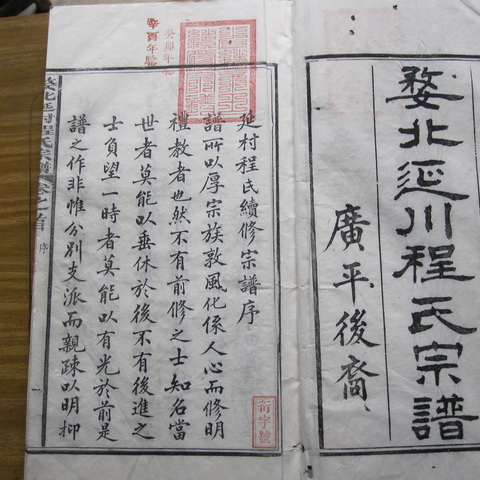 婺北延川程氏宗譜
廣平後裔
癸卯年驗
辛酉年驗
延村程氏續修宗譜序
譜所以厚宗族敦風化係人心而修明
禮教者也然不有前修之士知名當
世者莫能以垂休於後不有後進之
士負望一時者莫能以有光於前是
譜之作非惟分別支派而親疎以明抑
衍字號
婺北延村程氏宗譜 卷之首 序